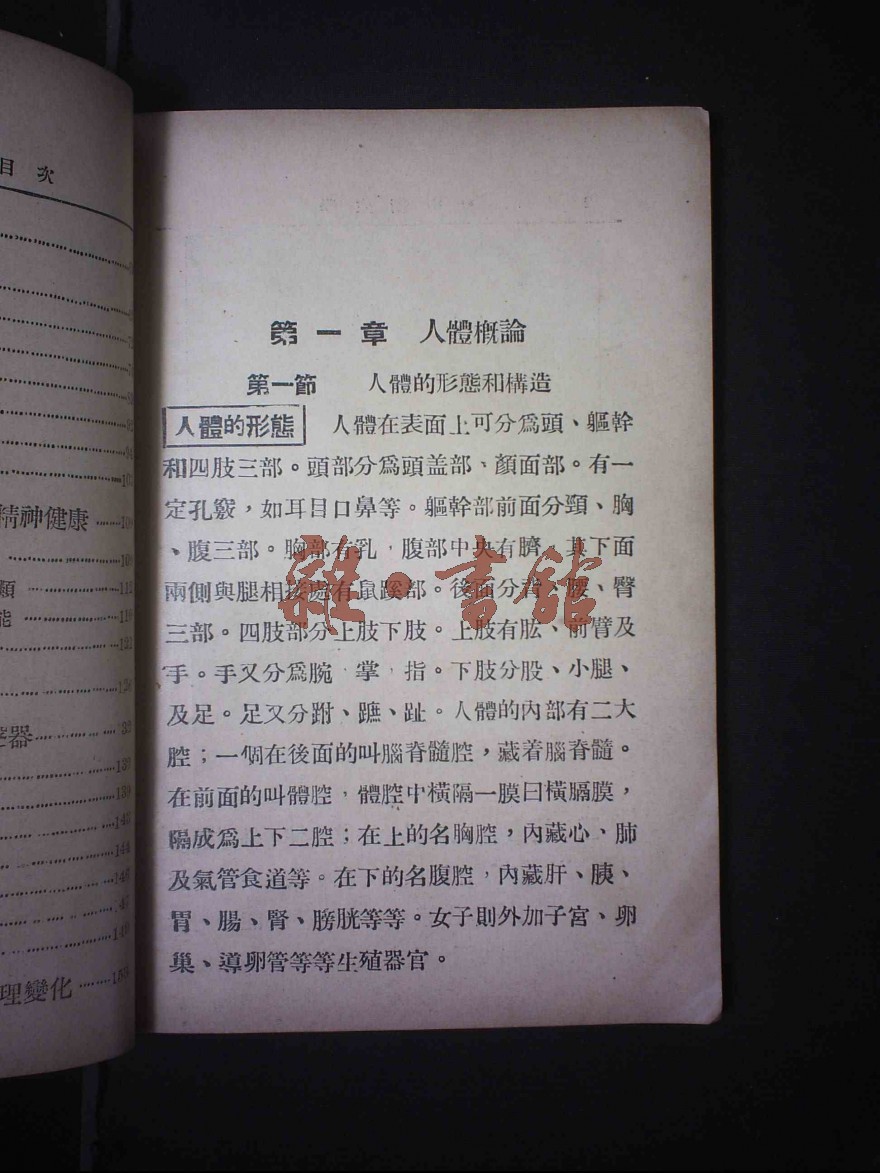 目次
精神健康
109
112
類
能
137
139
144
理變化
第一章 人體概論
第一節 人體的形態和構造
人體的形態 人體在表面上可分爲頭、軀幹
和四肢三部。頭部分爲頭盖部、顏面部。有一
定孔竅，如耳目口鼻等。軀幹部前面分頸、胸
、腹三部。胸部有乳，腹部中央有臍，其下面
兩側與腿相接處有鼠蹊部。後面分背、腰、臀
三部。四肢部分上肢下肢。上肢有肱、前臂及
手。手又分爲腕，掌，指。下肢分股、小腿、
及足。足又分跗、蹠、趾。人體的內部有二大
腔；一個在後面的叫腦脊髓腔，藏着腦脊髓。
在前面的叫體腔，體腔中橫隔一膜曰橫膈膜，
隔成爲上下二腔；在上的名胸腔，內藏心、肺
及氣管食道等。在下的名腹腔，內藏肝、胰、
胃、腸、腎、膀胱等等。女子則外加子宮、卵
巢、導卵管等等生殖器官。
雜·書館